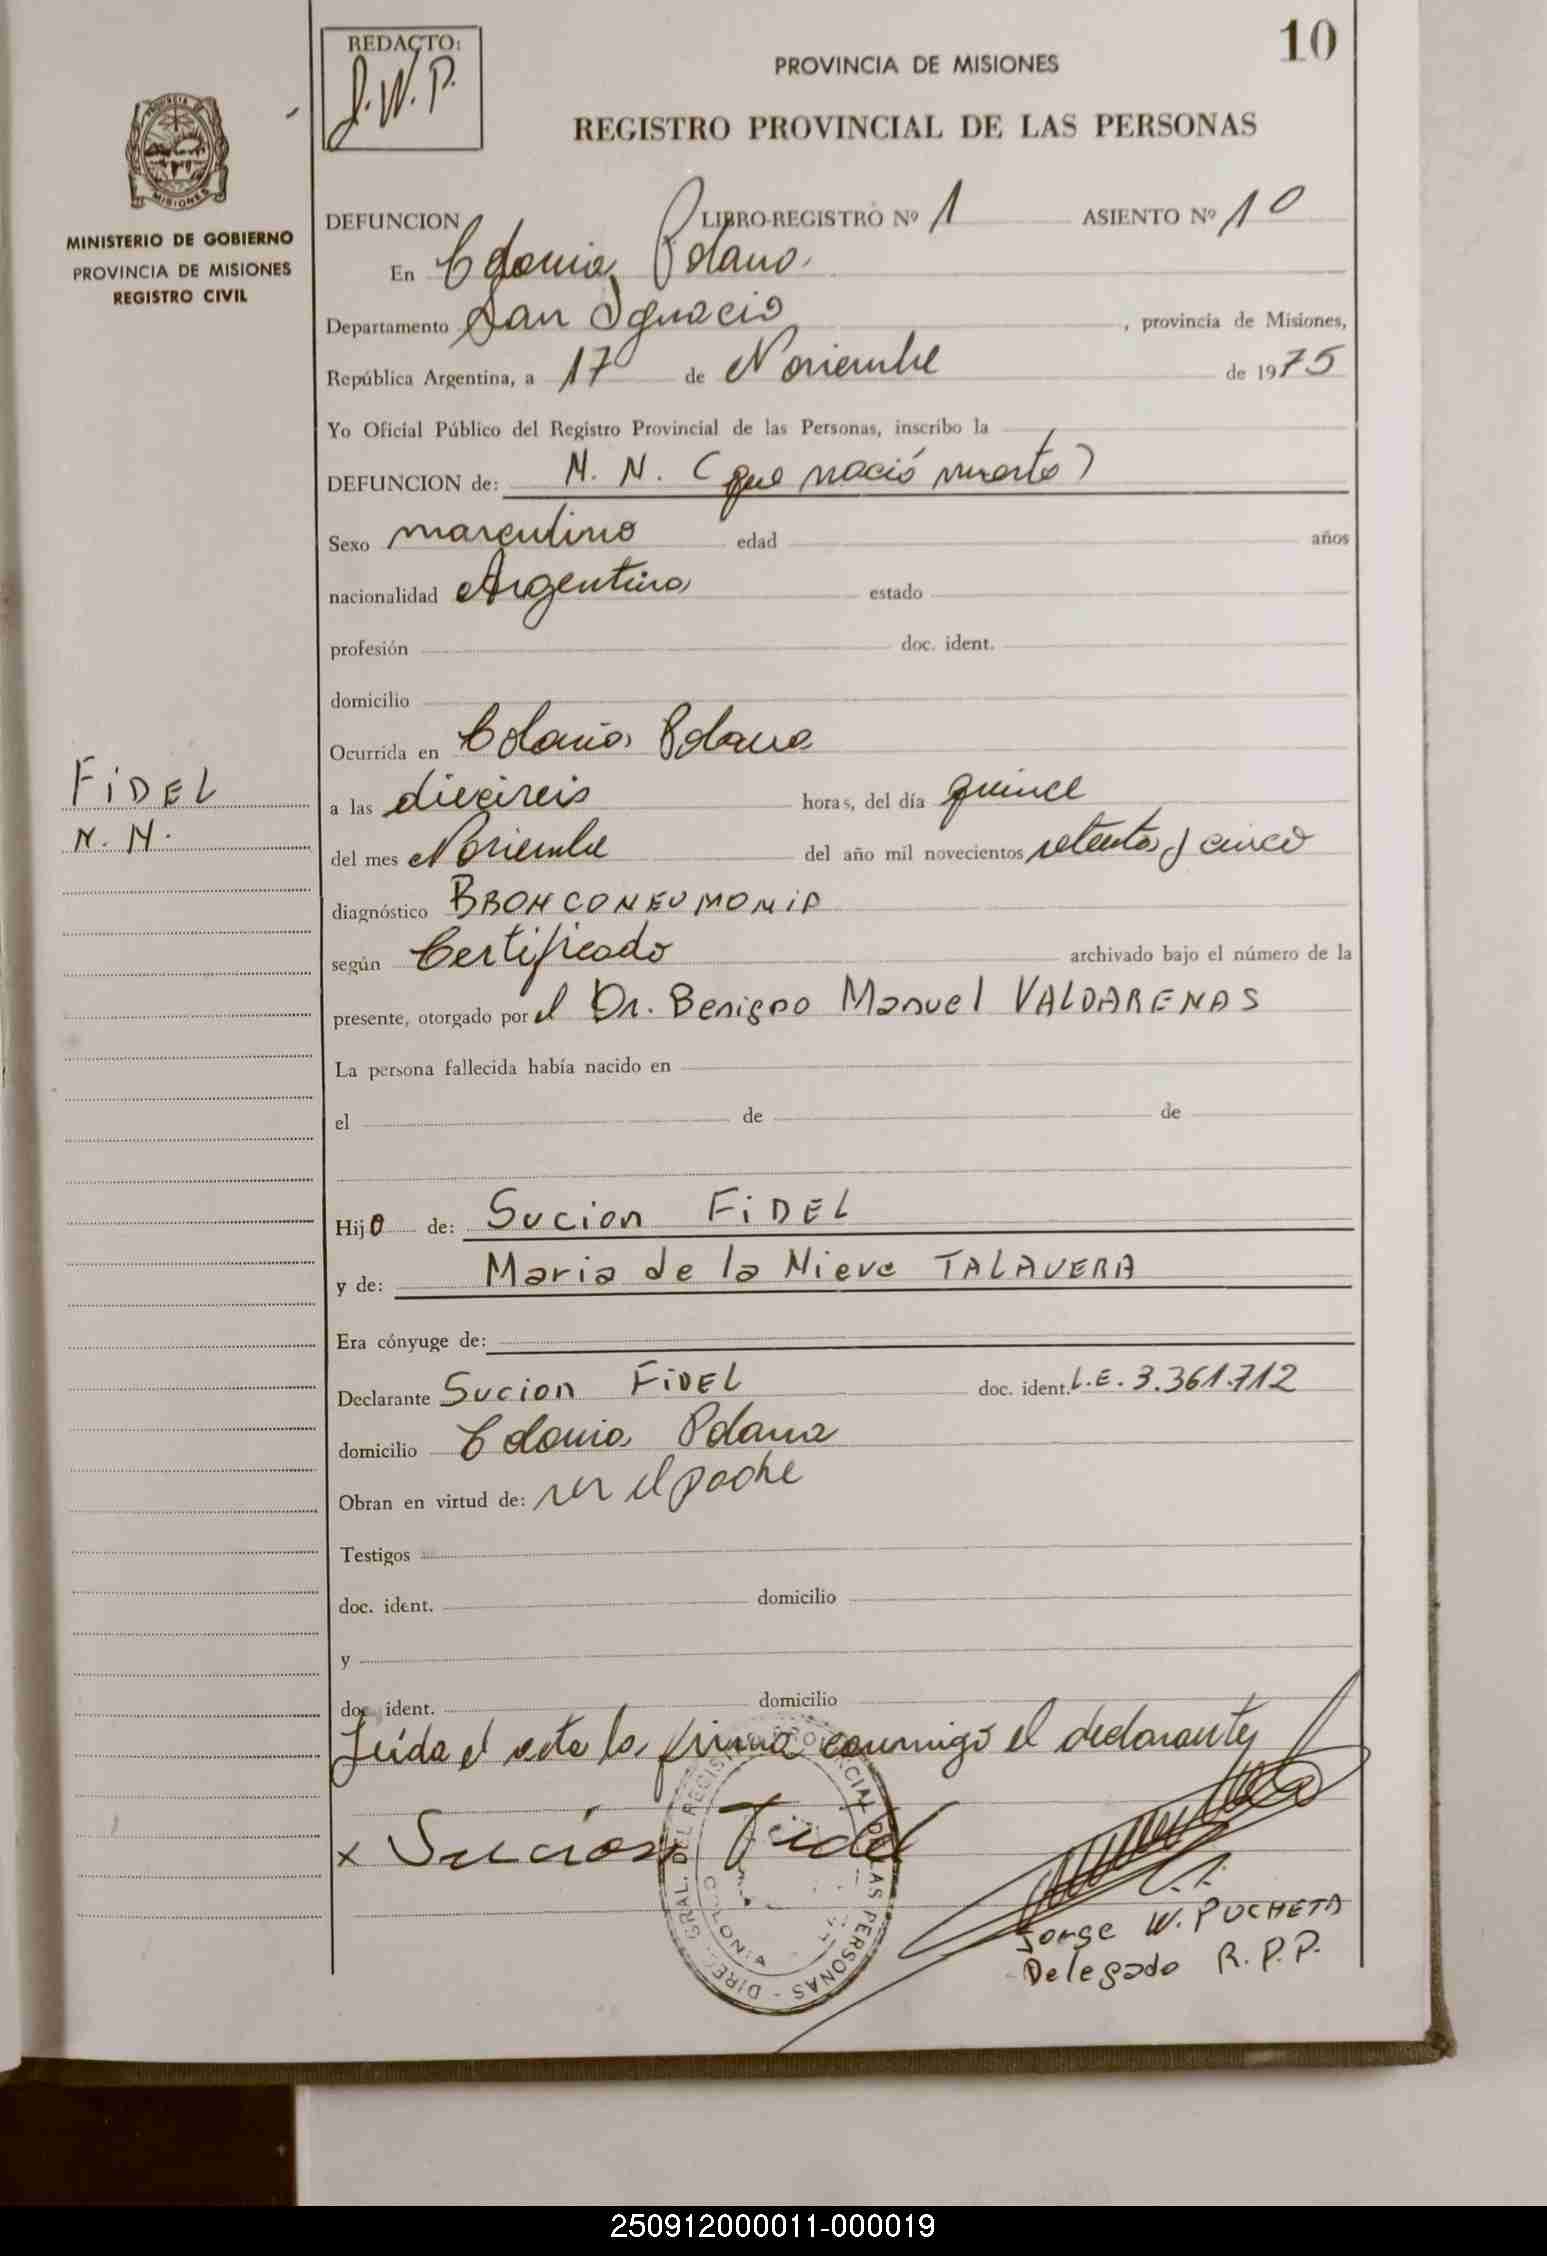 10
REDACTO:
J.W.P.
PROVINCIA DE MISIONES
REGISTRO PROVINCIAL DE LAS PERSONAS
PROVINCIA DE
MISIONES
MINISTERIO DE GOBIERNO
PROVINCIA DE MISIONES
REGISTRO CIVIL
DEFUNCION LIBRO-REGISTRO Nº 1 ASIENTO Nº 10
En Colonia Polana
Departamento San Ignacio, provincia de Misiones,
República Argentina, a 17 de Noviembre de 1975
Yo Oficial Público del Registro Provincial de las Personas, inscribo la
DEFUNCION de: N. N. (que nació muerto)
Sexo masculino edad años
nacionalidad Argentina estado
profesión doc. ident.
domicilio
Ocurrida en Colonia Polana
FiDEL
N. N.
a las dieciseis horas, del día quince
del mes Noviembre del año mil novecientos setenta y cinco
diagnóstico BRONCONEUMONIA
según Certificado archivado bajo el número de la
presente, otorgado por el Dr. Benigno Manuel VALDARENAS
La persona fallecida había nacido en
el de de
Hijo de: Sucion FiDEL
y de: Maria de la Nieve TALAVERA
Era cónyuge de:
Declarante Sucion FiDEL doc. ident. L.E. 3.361.712
domicilio Colonia Polana
Obran en virtud de: ser el padre
Testigos
doc. ident. domicilio
y
doc. ident. domicilio
Leída el acta la firma conmigo el declarante
x Sución Fidel
DIREC. GRAL. DEL REGISTRO PROVINCIAL DE LAS PERSONAS
Jorge W. PUCHETA
Delegado R.P.P.
250912000011-000019